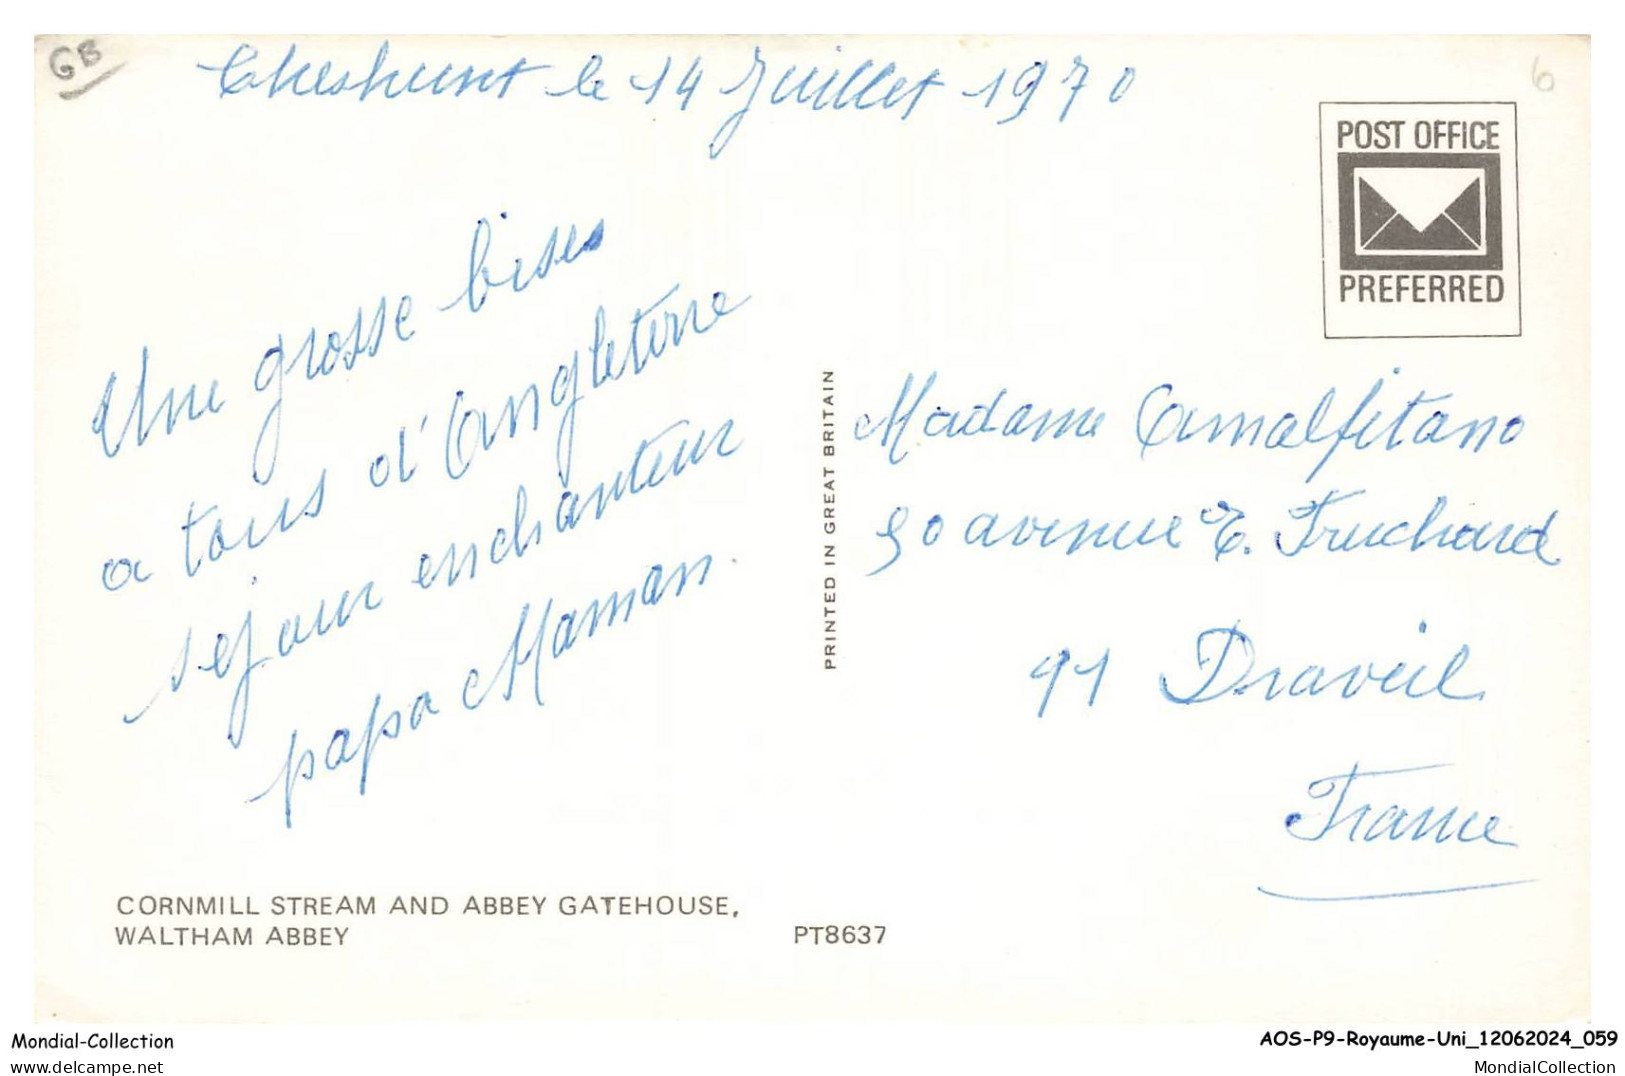 GB
Cheshunt le 14 Juillet 1970
6
POST OFFICE
PREFERRED
Une grosse bises
a tous d'Angleterre
sejour enchanteur
papa Maman.
PRINTED IN GREAT BRITAIN
Madame Amalfitano
90 avenue E. Truchard
91 Draveil
France
CORNMILL STREAM AND ABBEY GATEHOUSE,
WALTHAM ABBEY
PT8637
Mondial-Collection
AOS-P9-Royaume-Uni_12062024_059
www.delcampe.net
MondialCollection